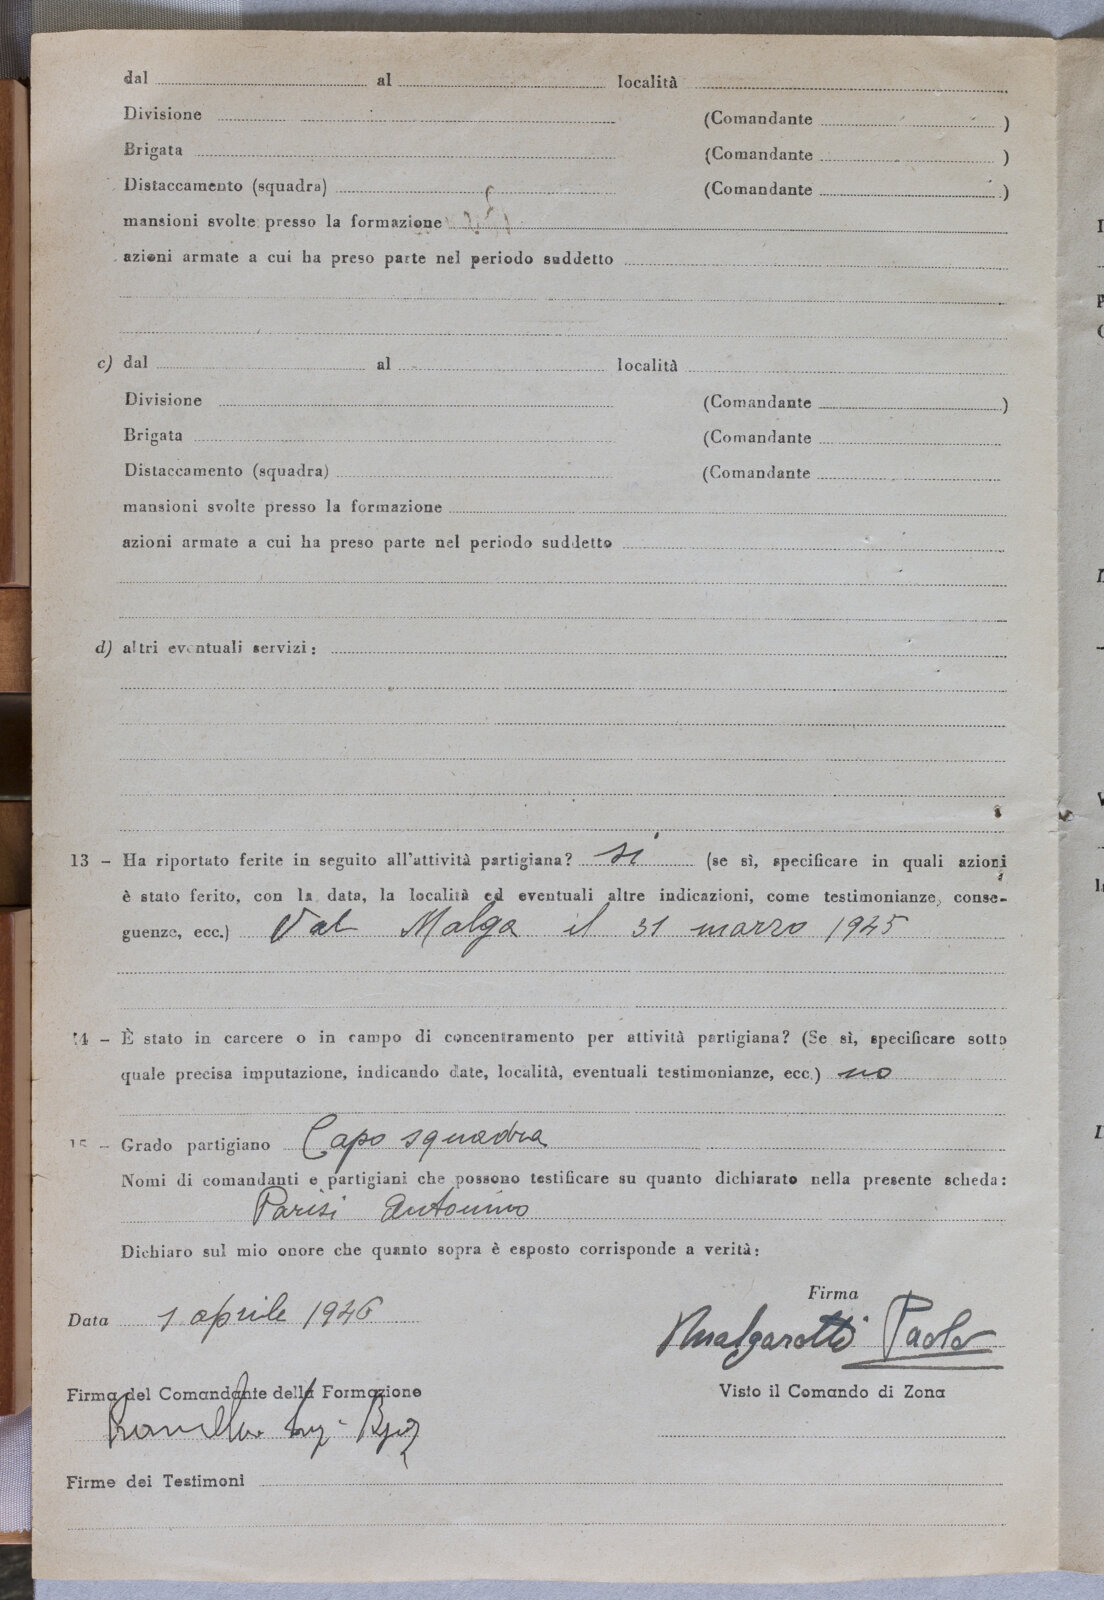 dal al località
Divisione (Comandante )
Brigata (Comandante )
Distaccamento (squadra) (Comandante )
mansioni svolte presso la formazione
azioni armate a cui ha preso parte nel periodo suddetto
c) dal al località
Divisione (Comandante )
Brigata (Comandante
Distaccamento (squadra) (Comandante
mansioni svolte presso la formazione
azioni armate a cui ha preso parte nel periodo suddetto
d) altri eventuali servizi:
13 - Ha riportato ferite in seguito all'attività partigiana? si (se sì, specificare in quali azioni
è stato ferito, con la data, la località ed eventuali altre indicazioni, come testimonianze, conse-
guenze, ecc.) Val Malga il 31 marzo 1945
14 - È stato in carcere o in campo di concentramento per attività partigiana? (Se sì, specificare sotto
quale precisa imputazione, indicando date, località, eventuali testimonianze, ecc.) no
15 - Grado partigiano Capo squadra
Nomi di comandanti e partigiani che possono testificare su quanto dichiarato nella presente scheda:
Parisi Antonino
Dichiaro sul mio onore che quanto sopra è esposto corrisponde a verità:
Firma
Data 1 aprile 1946
Malgarotti Paolo
Firma del Comandante della Formazione Visto il Comando di Zona
Firme dei Testimoni